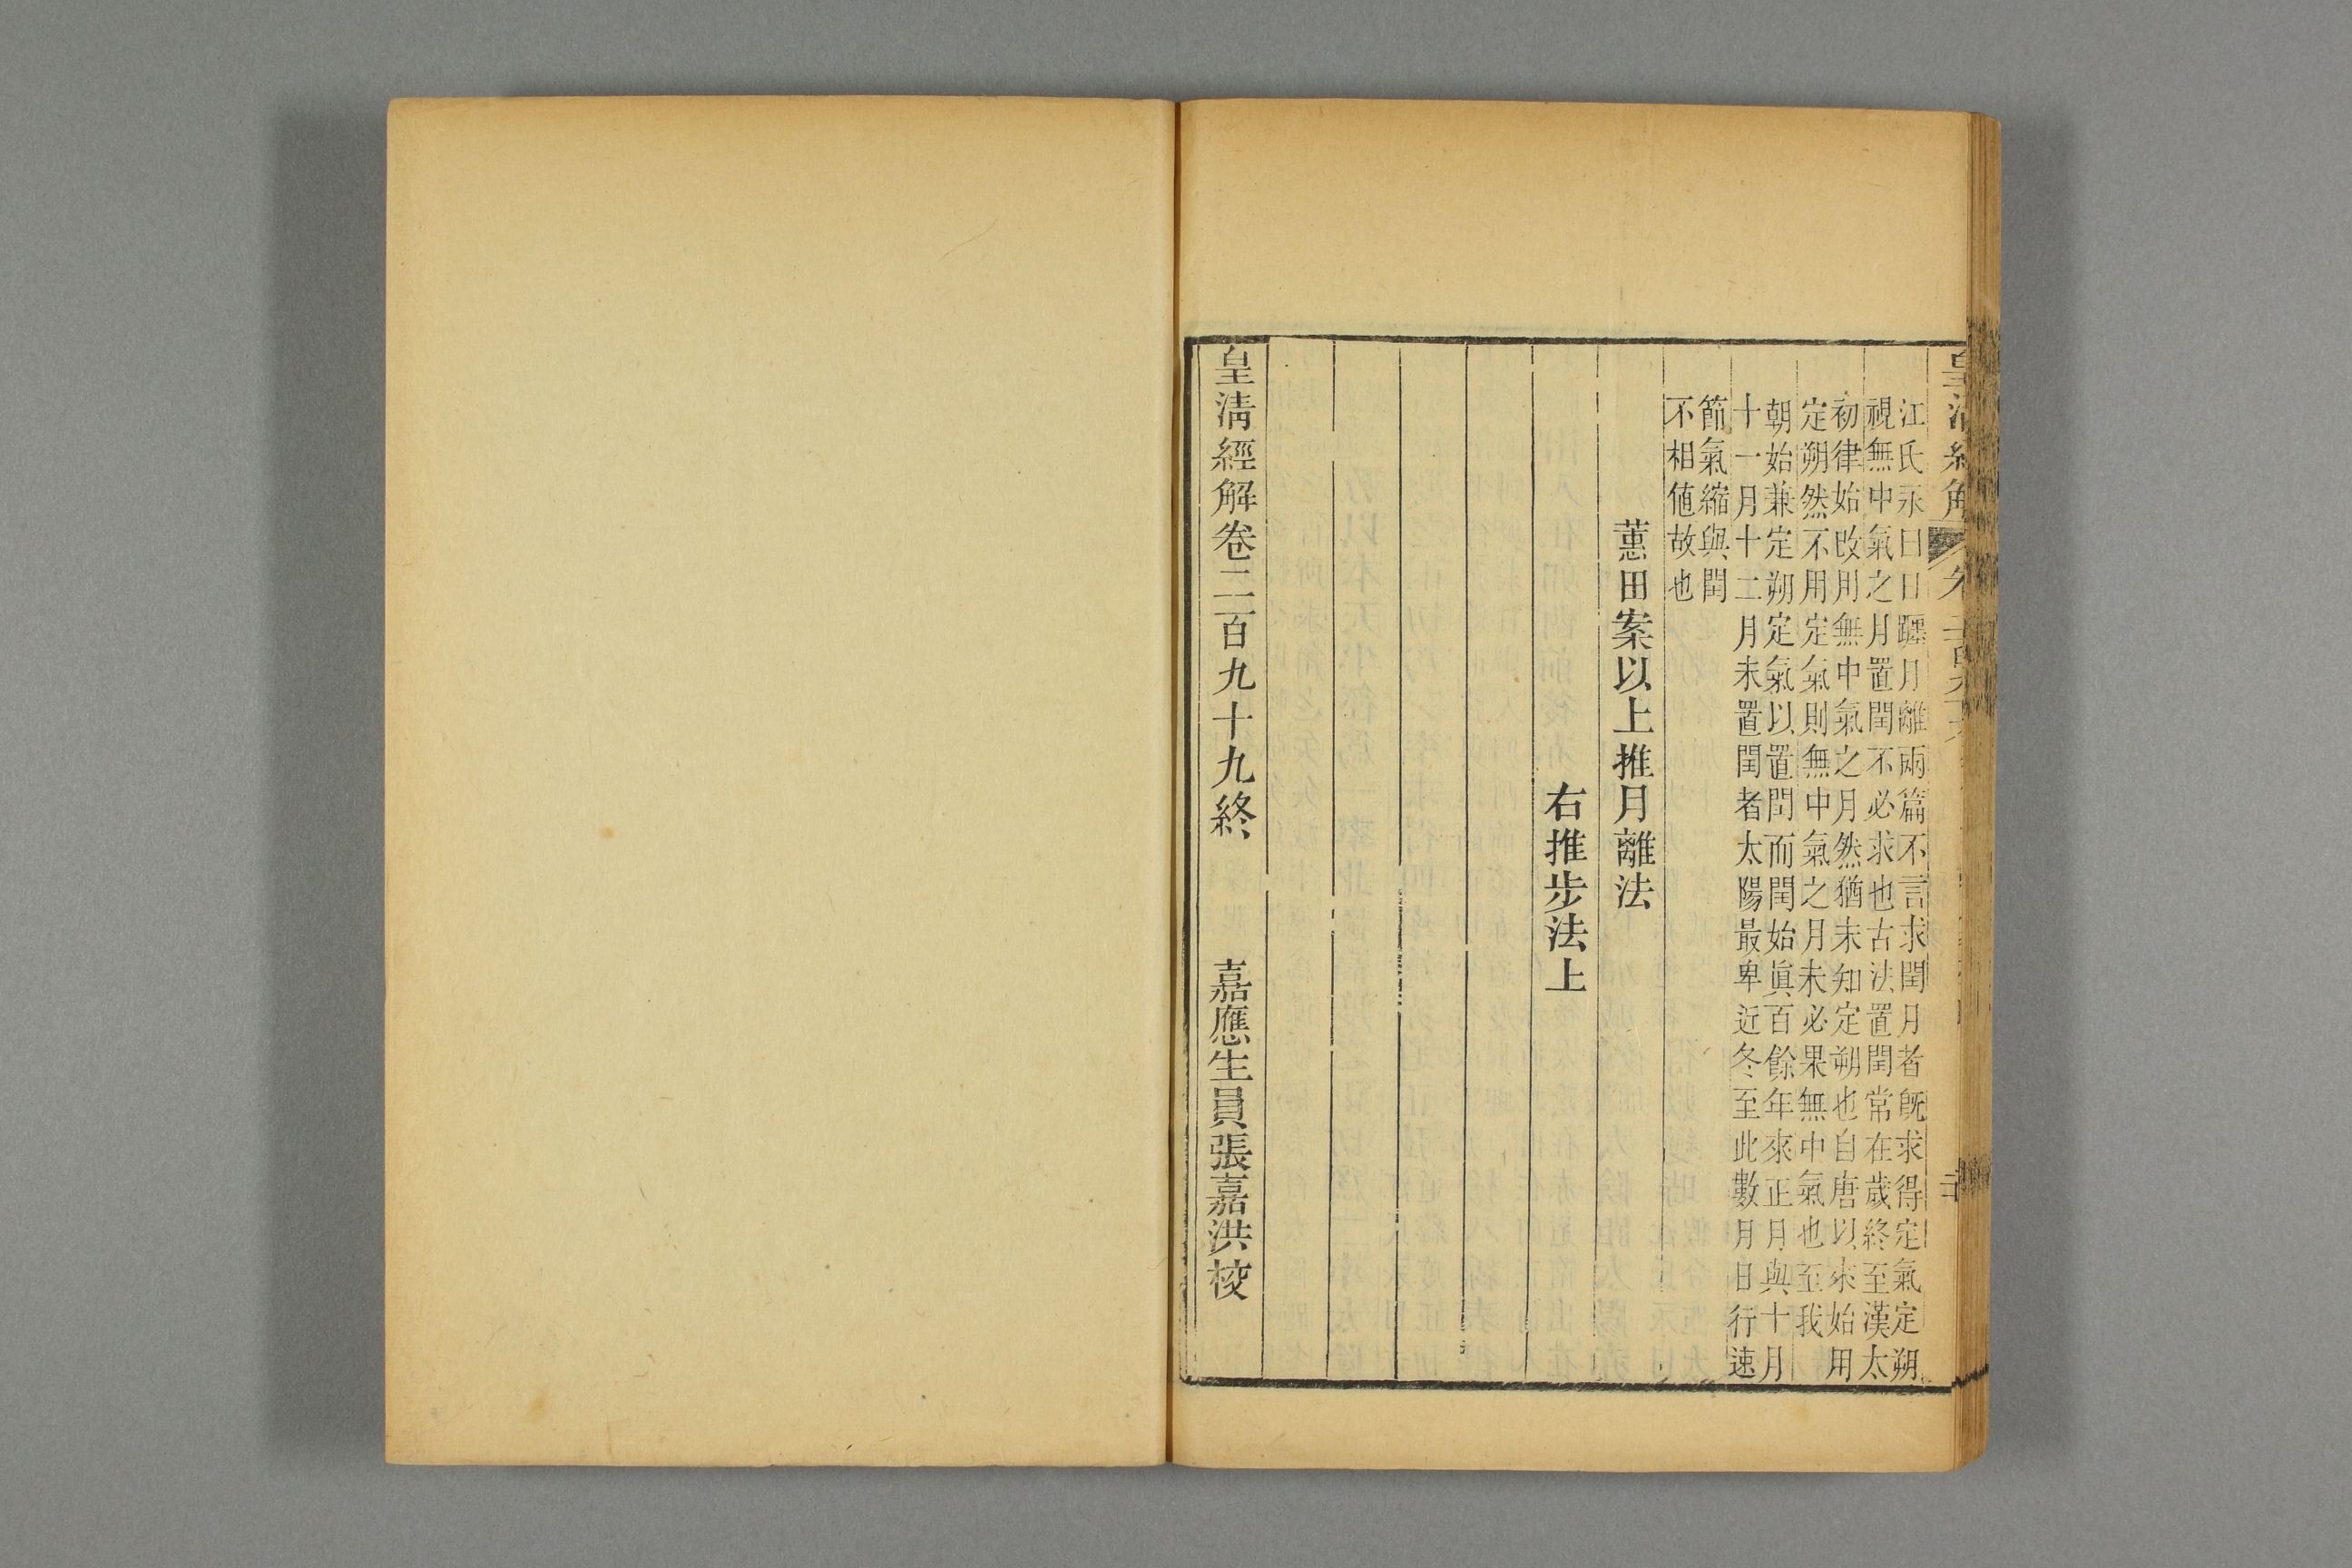 江氏永曰日躔月離兩篇不言求閏月者旣求得定氣定朔
視無中氣之月置閏不必求也古法置閏常在歲終至漢太
初律始改用無中氣之月然猶未知定朔也自唐以來始用
定朔然不用定氣則無中氣之月未必果無中氣也至我
朝始兼定朔定氣以置閏而閏始眞百餘年來正月與十月
十一月十二月未置閏者太陽最卑近冬至此數月日行速
節氣縮與閏
不相値故也
蕙田案以上推月離法
右推步法上
皇淸經解卷二百九十九終
嘉應生員張嘉洪校